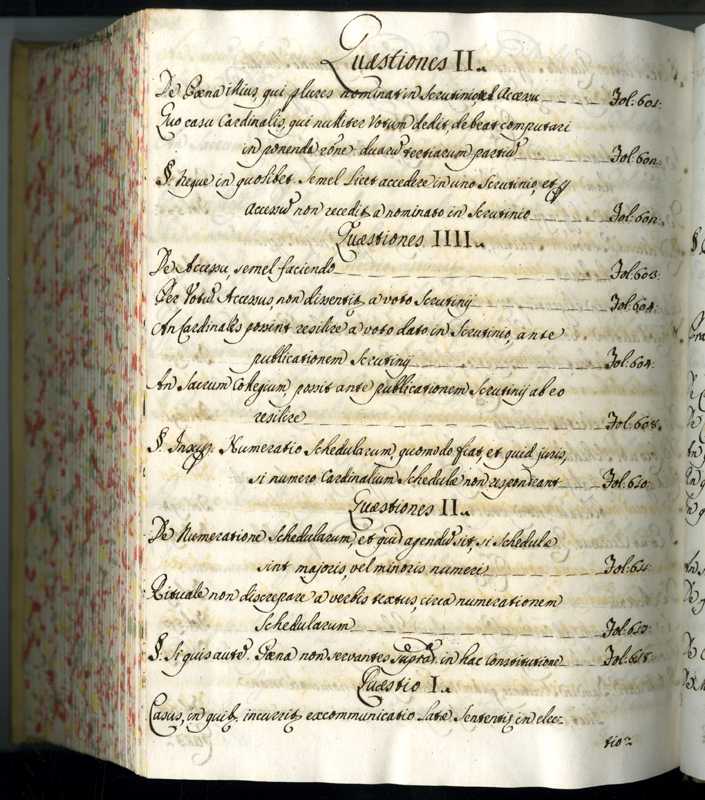 Quæstiones II.
De Pœna illius, qui plures nominat in Scrutinio, vel Accessu Fol: 601:
Quo casu Cardinalis, qui nulliter Votum dedit debeat computari
in ponenda rõne duarũ tertiarum partiũ Fol: 602:
§. Neque in quolibet. Semel licet accedere in uno Scrutinio, et
Accessũ non recedit a nominato in Scrutinio Fol: 602:
Quæstiones IIII.
De Accessu, semel faciendo Fol: 603:
Per Votũ Accessus, non dissentit a voto Scrutinij Fol: 604:
An Cardinalis possint resilire a voto dato in Scrutinio, ante
publicationem Scrutinij Fol: 604:
An Sacrum Collegium, possit ante publicationem Scrutinij ab eo
resilire Fol: 608:
§. Numeratio Schedularum, quomodo fiat, et quid juris,
si numero Cardinalium Schedulæ non respondeant Fol: 610:
Quæstiones II.
De Numeratione Schedularum, et quid agendũ sit, si Schedulæ
sint majoris, vel minoris numeri Fol: 611:
Rituale non discrepare a verbis textus, circa numerationem
Schedularum Fol:
§. Si quis autẽ. Pœna non servantes supta. in hac Constitutione Fol: 618:
Quæstio I.
Casus, in quib, incurrit excommunicatio latæ Sententiæ in elec-
tio-